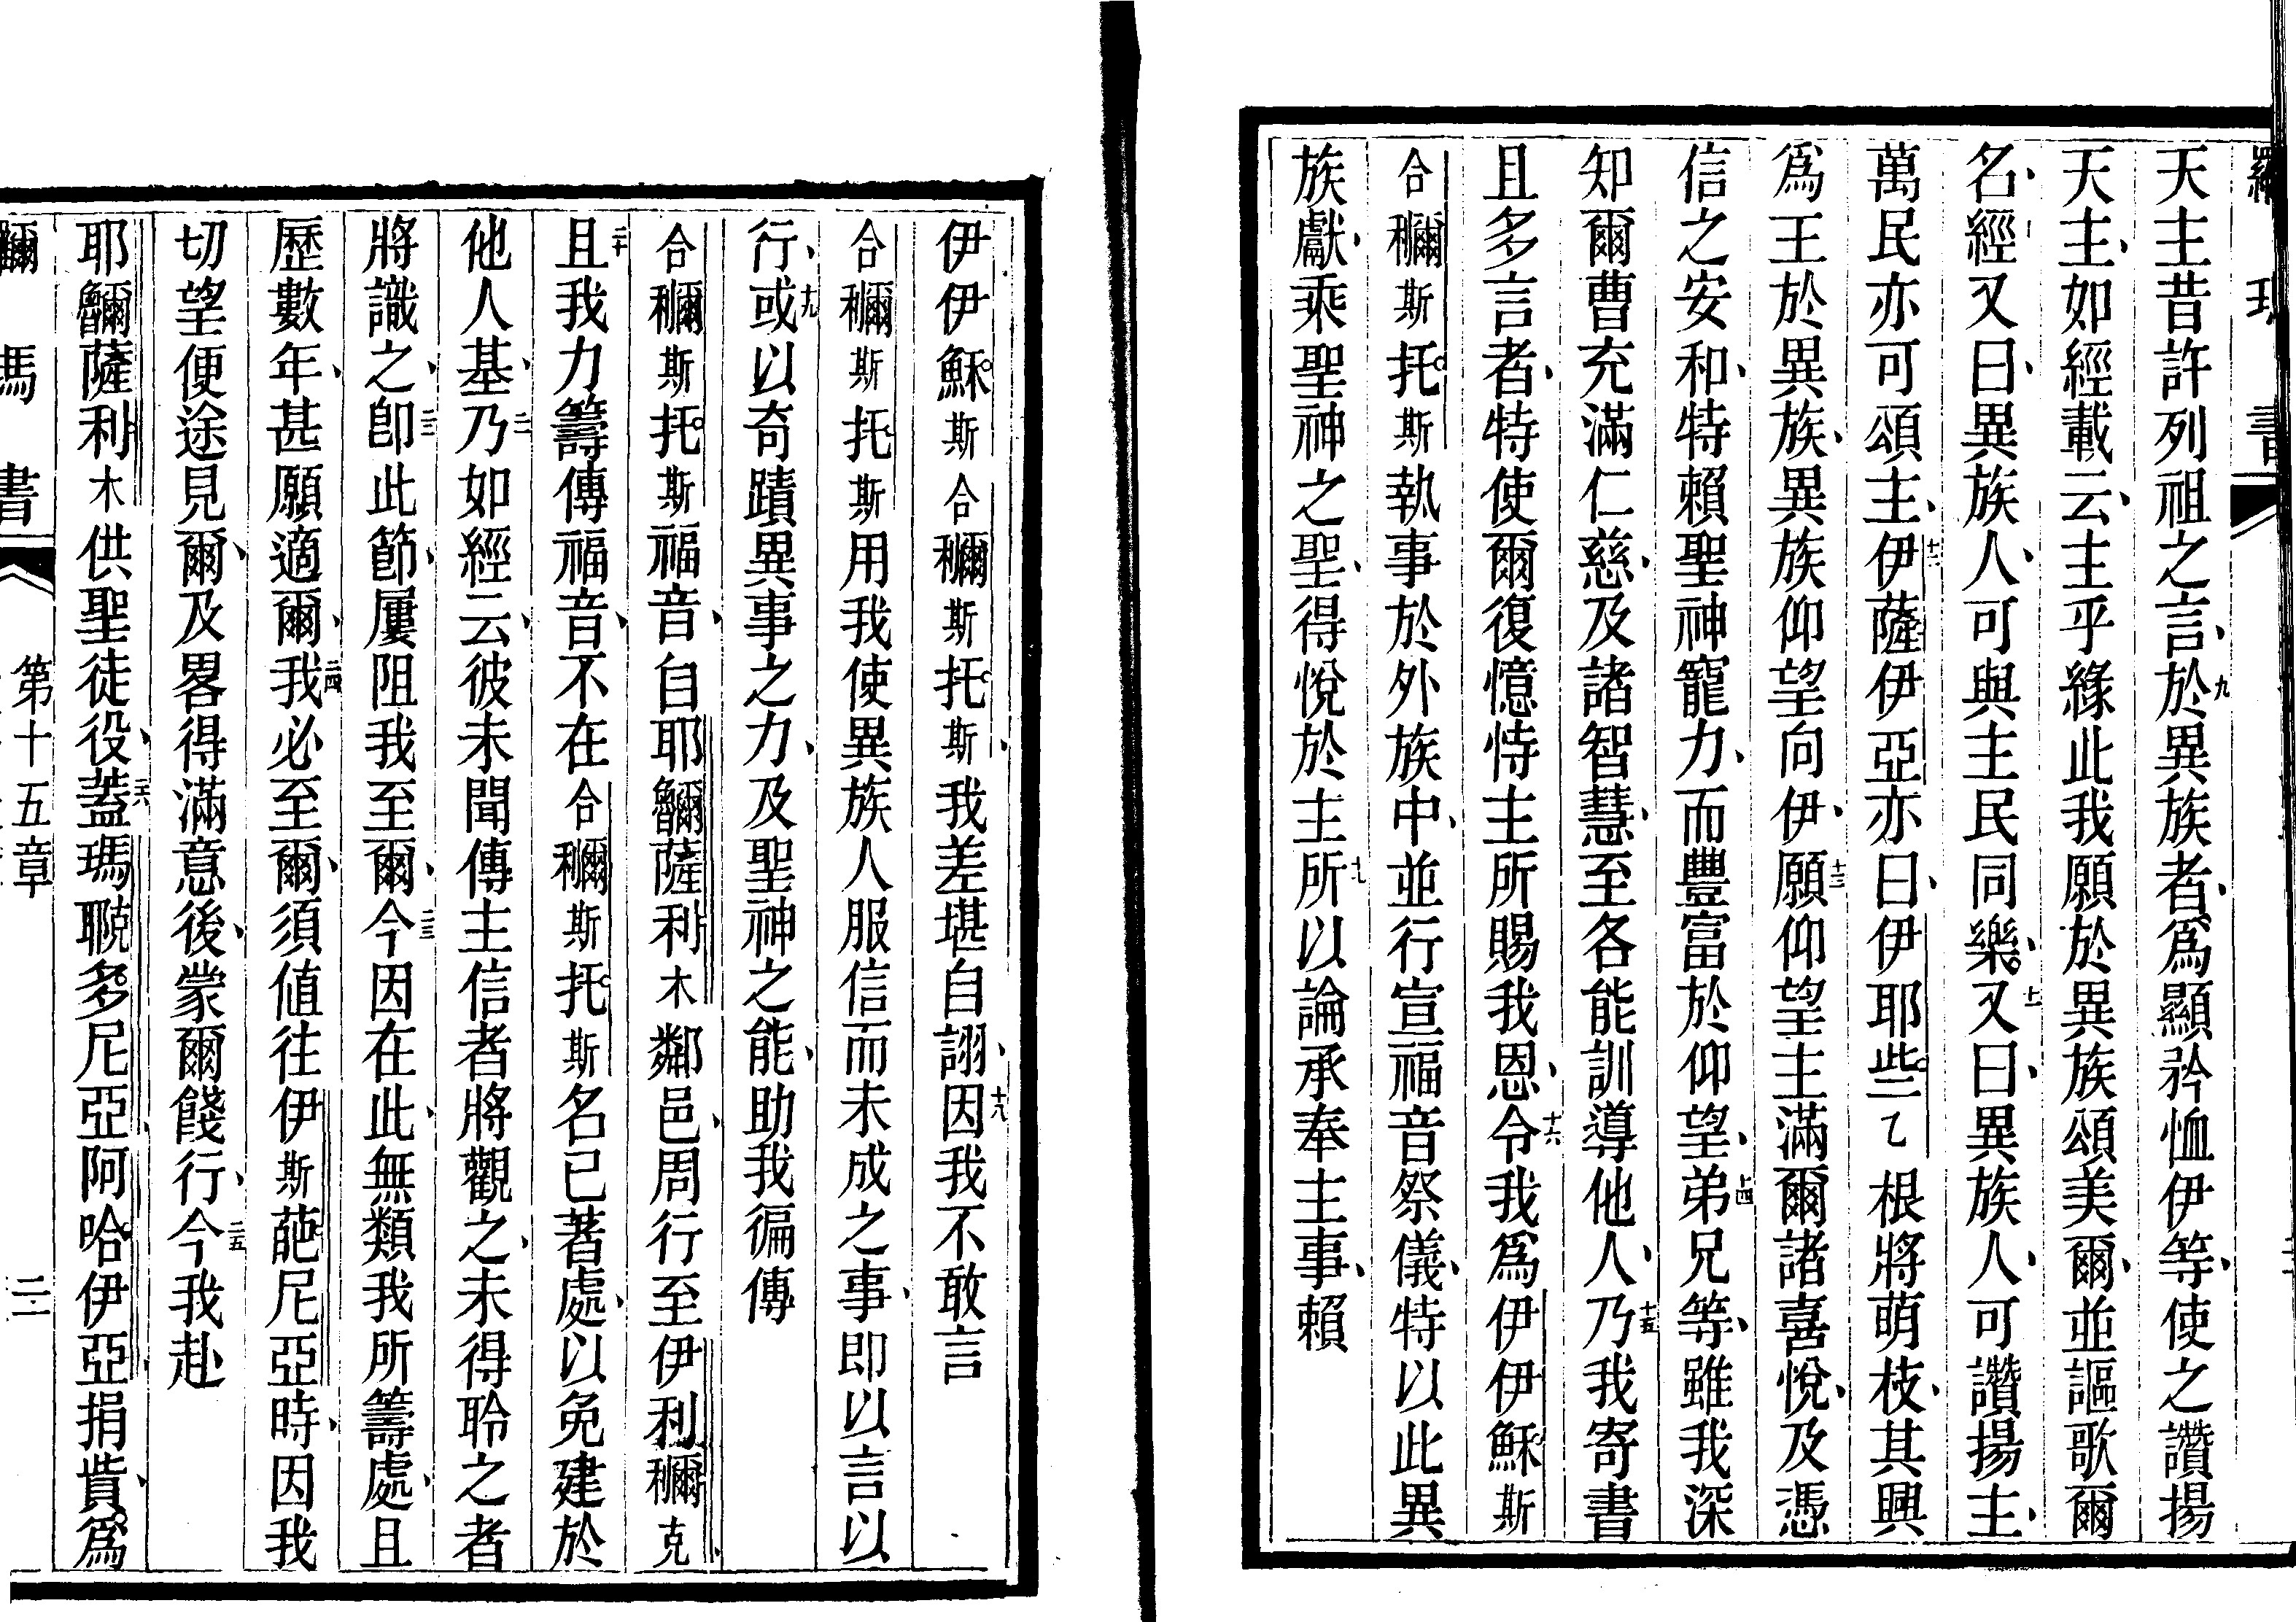 羅瑪書
天主昔許列祖之言、九於異族者、爲顯矜恤伊等、使之讚揚
天主、如經載云、主乎緣此我願於異族頌美爾、並謳歌爾
名、經又曰、異族人、可與主民同樂。十一又曰、異族人、可讚揚主、
萬民亦可頌主、十二伊薩伊亞亦曰、伊耶些乙根將萌枝、其興
爲王於異族、異族仰望向伊、十三願仰望主滿爾諸喜悅、及憑
信之安和、特賴聖神寵力、而豐富於仰望、十四弟兄等、雖我深
知爾曹充滿仁慈、及諸智慧、至各能訓導他人、十五乃我寄書
且多言者、特使爾復憶恃主所賜我恩、十六令我爲伊伊穌斯
合穪斯托斯執事於外族中、並行宣福音祭儀、特以此異
族獻、乘聖神之聖、得悅於主、十七所以論承奉主事、賴
伊伊穌斯合穪斯托斯、我差堪自詡、十八因我不敢言
合穪斯托斯用我使異族人服信而未成之事、即以言以
行、十九或以奇蹟異事之力、及聖神之能、助我徧傳
合穪斯托斯福音、自耶⿰魯爾薩利木鄰邑、周行至伊利穪克、
二十且我力籌傳福音、不在合穪斯托斯名已著處、以免建於
他人基、二一乃如經云、彼未聞傳主信者將觀之、未得聆之者
將識之、二二即此節、屢阻我至爾、二三今因在此、無類我所籌處、且
歷數年、甚願適爾、二四我必至爾、須値往伊斯葩尼亞時、因我
切望便途見爾、及畧得滿意後、蒙爾餞行、二五今我赴
耶⿰魯爾薩利木供聖徒役、二六蓋瑪⿰耶克多尼亞、阿哈伊亞、捐貲、爲
羅瑪書 第十五章 二